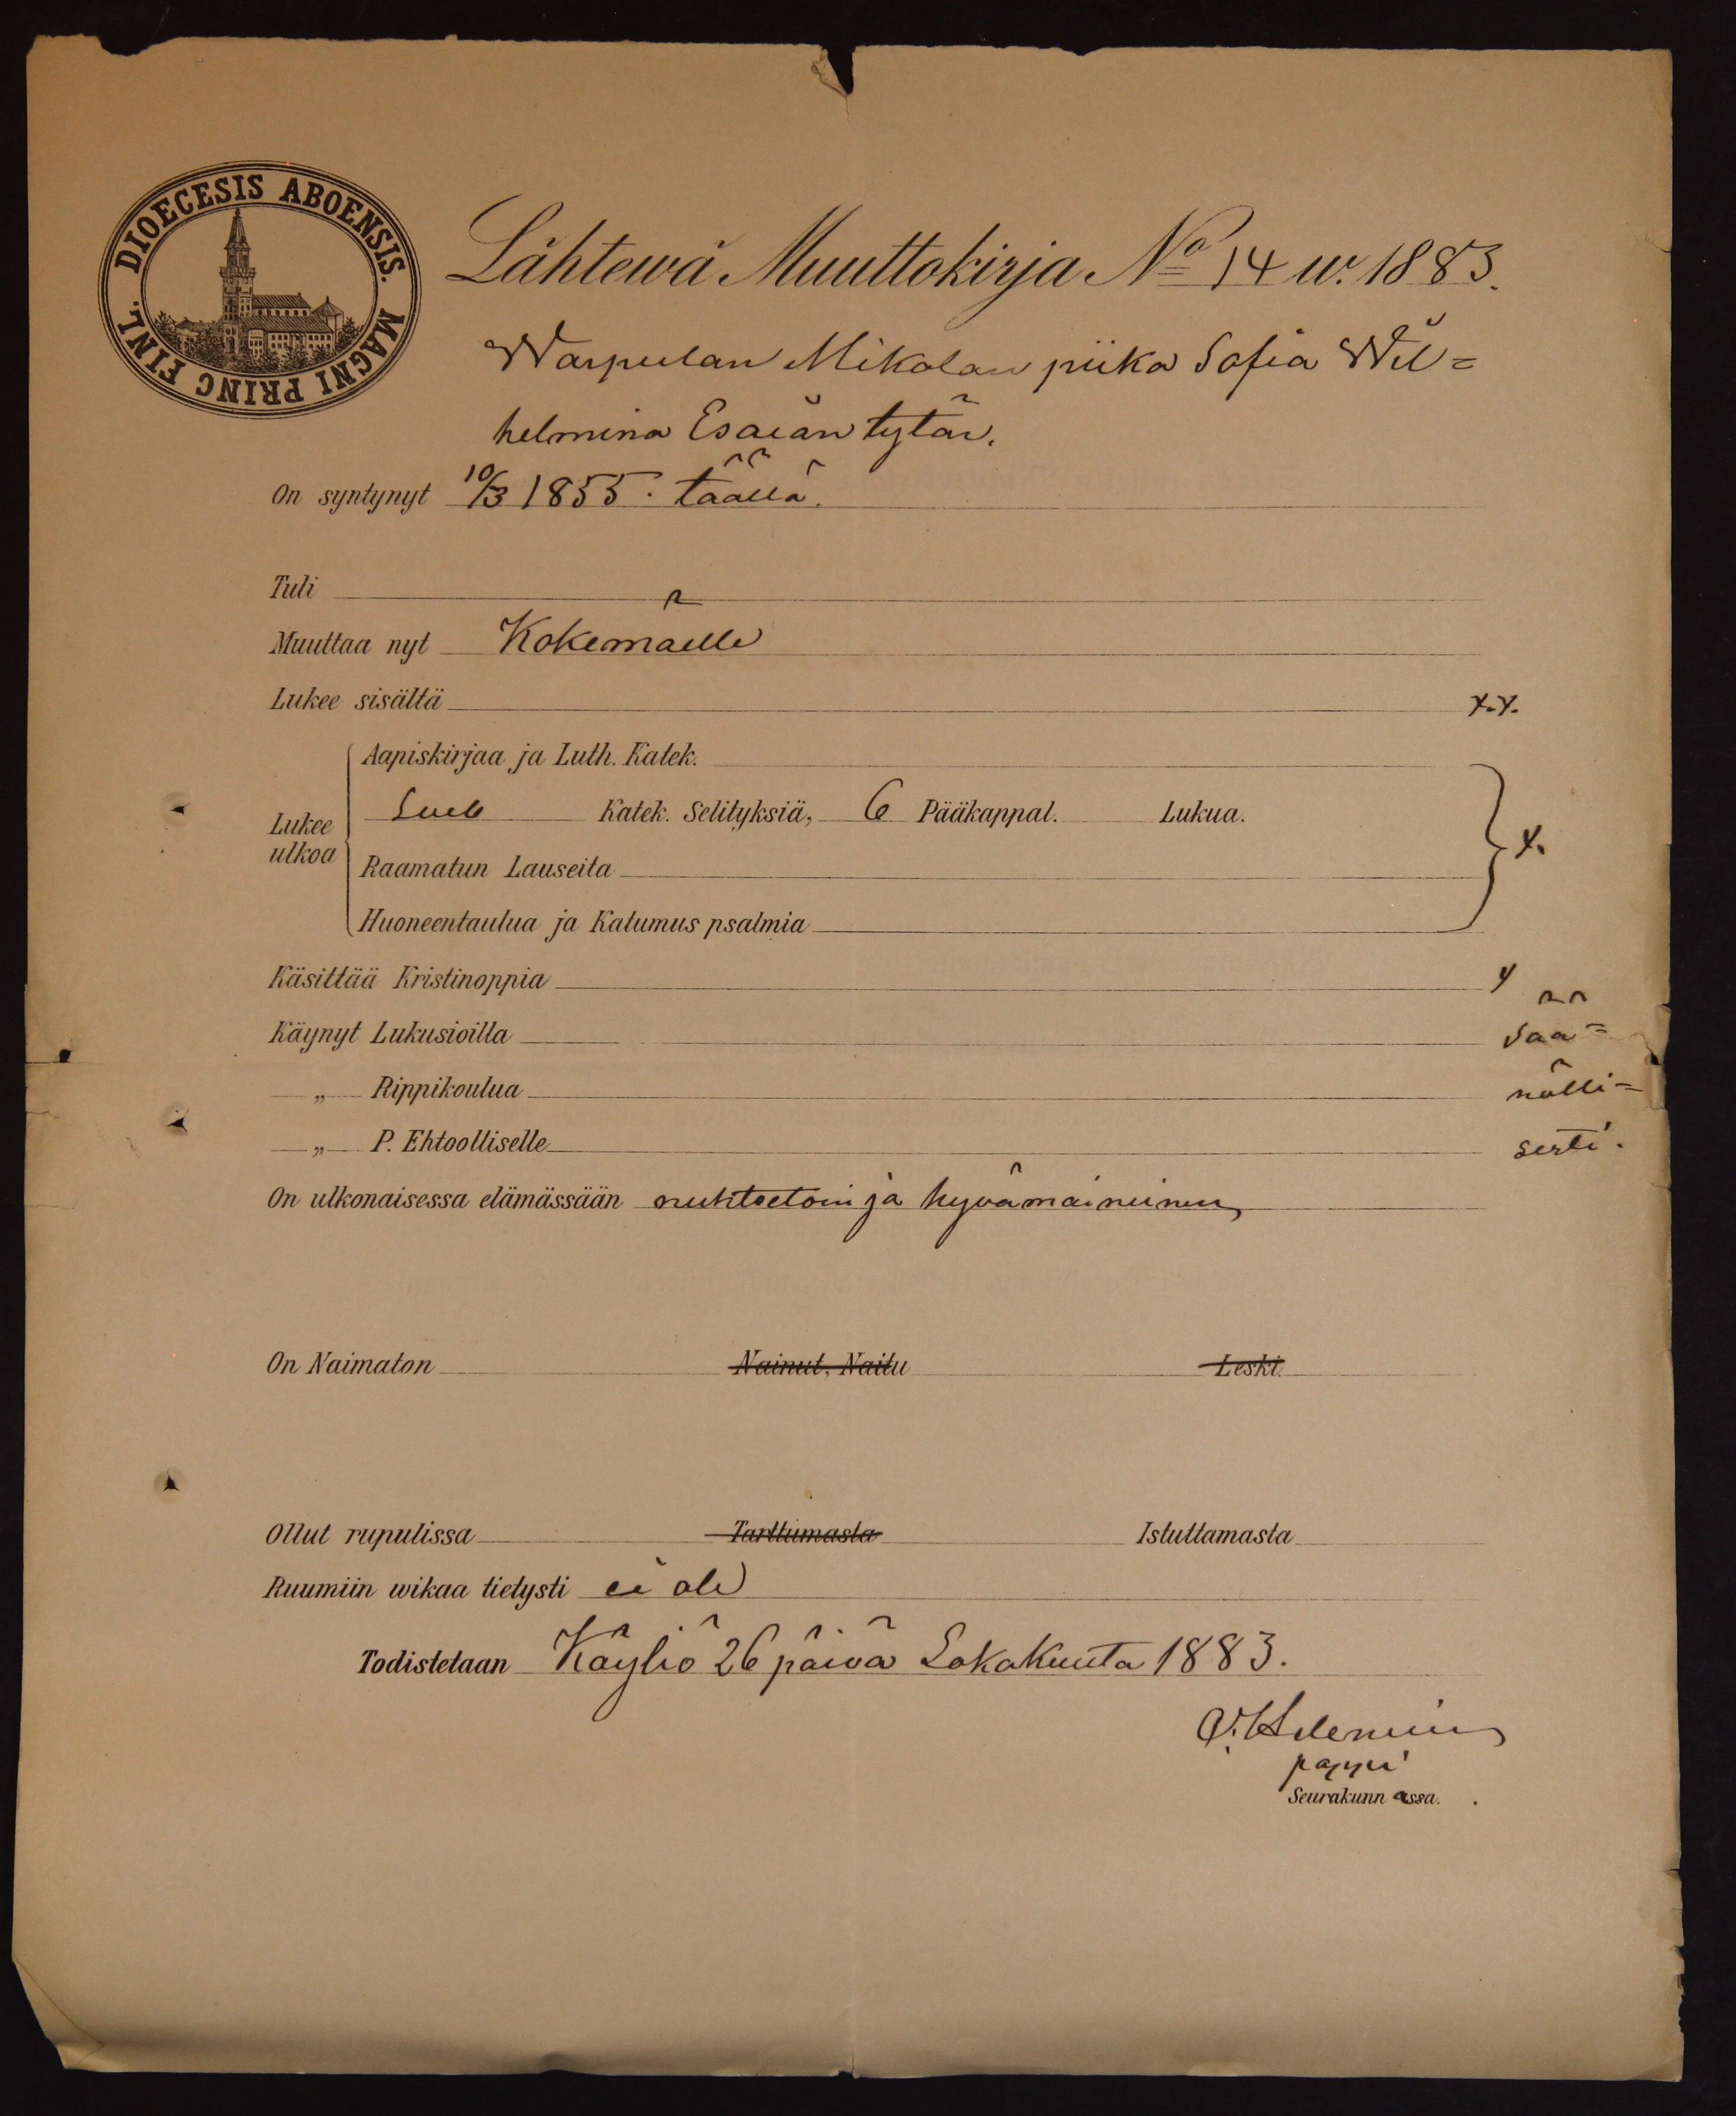 DIOECESIS ABOENSIS. MAGNI PRINC FINL.
Lähtewä Muuttokirja No 14 w. 1883.
Warpulan Mikolan piika Sofia Wil=
helmina Esaiän tytär.
On syntynyt 10/3 1855. täällä.
Tuli
Muuttaa nyt Kokemäelle
Lukee sisältä x.x.
Aapiskirjaa ja Luth. Katek.
Lukee ulkoa Katek. Selityksiä, 6 Pääkappal. Lukua. x.
Raamatun Lauseita
Huoneentaulua ja Katumus psalmia
Käsittää Kristinoppia x
Käynyt Lukusioilla sää=
„ Rippikoulua nölli=
„ P. Ehtoolliselle sesti.
On ulkonaisessa elämässään nuhteetoin ja hyvämaineinen
On Naimaton Nainut, Naitu Leski.
Ollut rupulissa Tarttumasta Istuttamasta
Ruumiin wikaa tietysti ei ole
Todistetaan Köyliö 26 päivä Lokakuuta 1883.
pappi
Seurakunnassa.